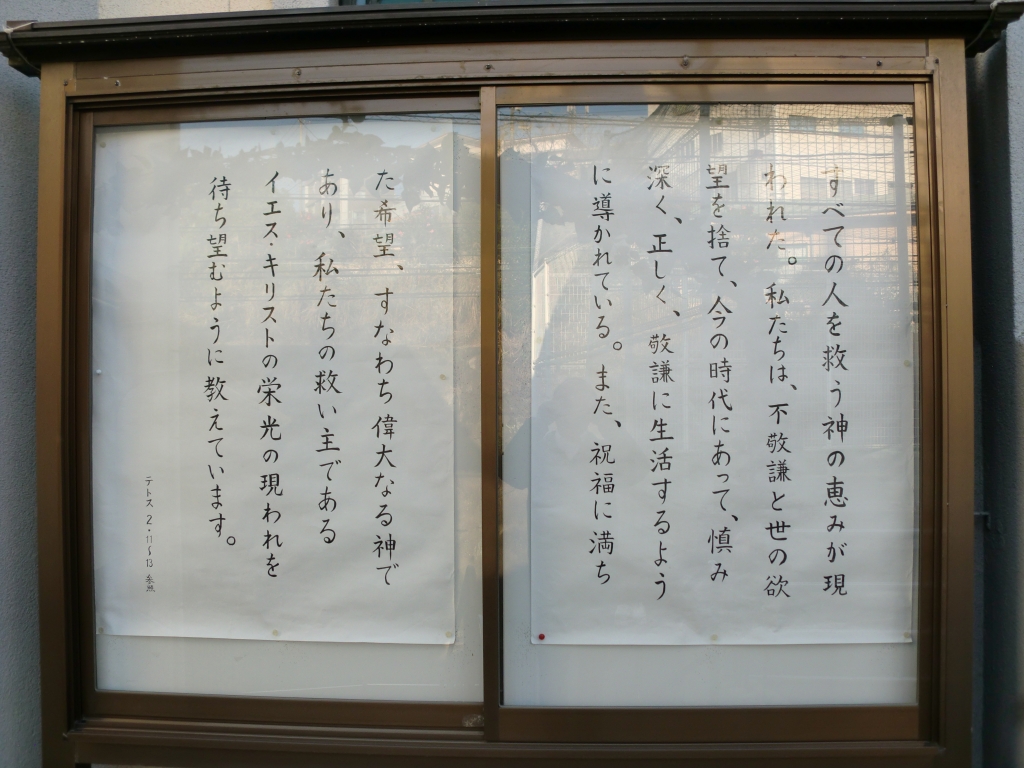 すべての人を救う神の恵みが現
われた。私たちは、不敬謙と世の欲
望を捨て、今の時代にあって、慎み
深く、正しく、敬謙に生活するよう
に導かれている。また、祝福に満ち
た希望、すなわち偉大なる神で
あり、私たちの救い主である
イエス・キリストの栄光の現われを
待ち望むように教えています。
テトス 2・11〜13 参照